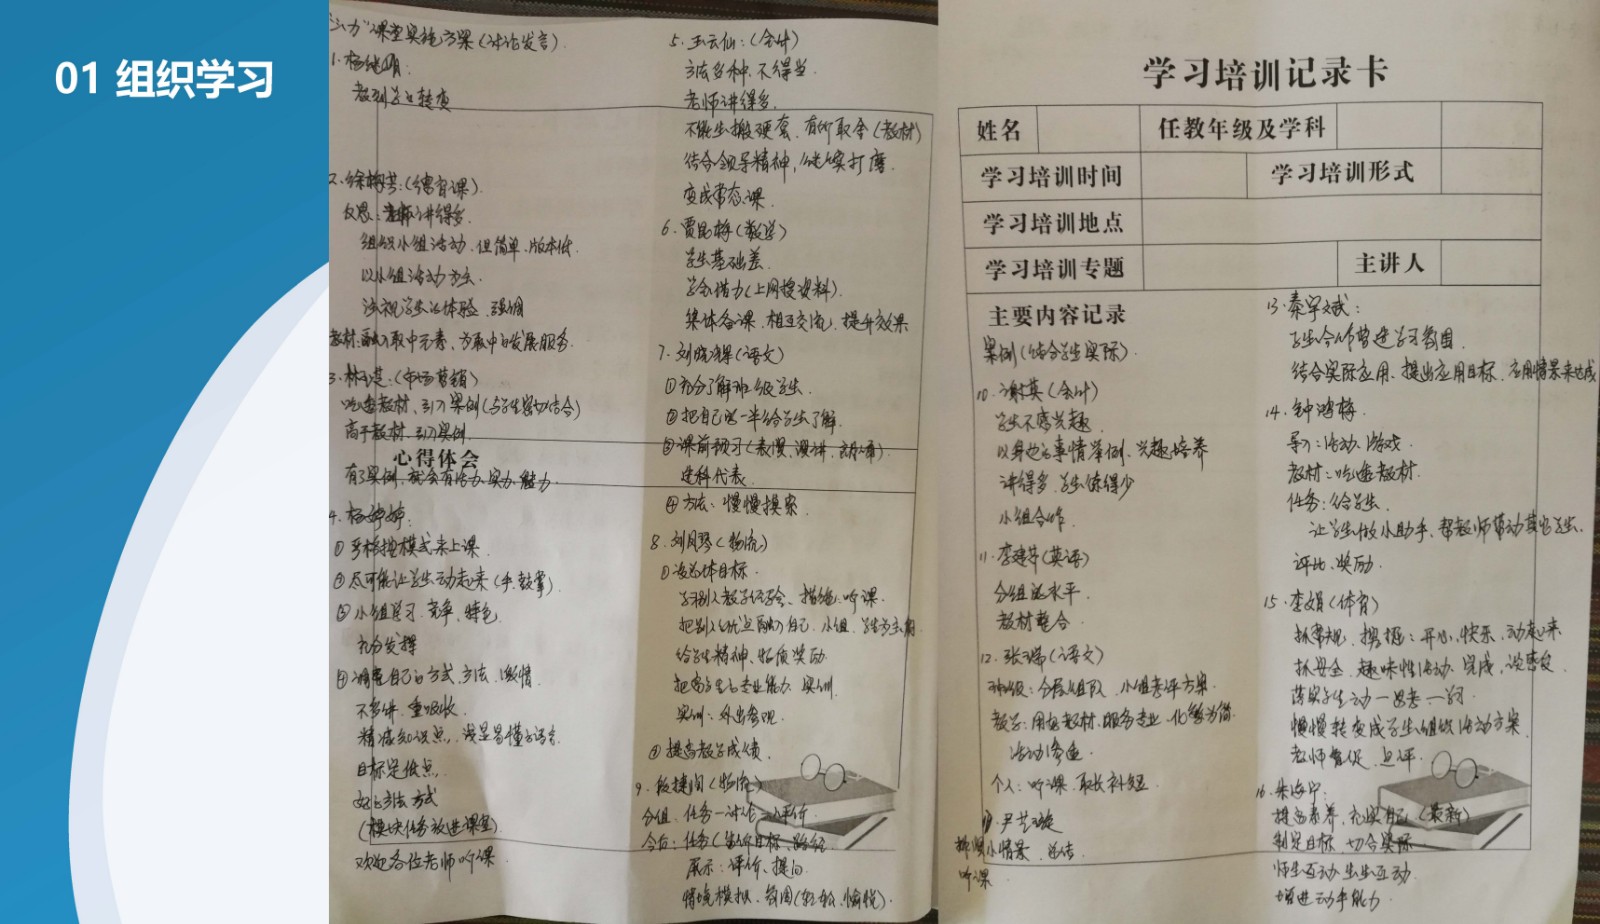 01 组织学习
"三力"课堂实施方案(讨论发言).
1.杨继明:
教到学的转变
2.徐梅芸:(德育课).
反思:老师讲得多.
组织小组活动.但简单.版本低.
以小组活动为主.
注视学生的体验.强调
教材:融入职中元素、为职中的发展服务.
3.林芝:(市场营销)
吃透教材、引入案例(与学生密切结合)
高于教材.引入实例.
心得体会
有了实例,就会有活力.实力.魅力.
4.杨婷婷:
①多样授模式来上课.
②尽可能让学生动起来(手.鼓掌).
③小组学习.竞争、特色.
充分发挥
④调整自己的方式.方法.激情.
不多讲.重吸收.
精准知识点.浅显易懂的语言.
目标定低点.
好的方法.方式
(模块任务放进课堂).
欢迎各位老师听课.
5.王云仙:(会计)
方法多种.不得当.
老师讲得多.
不能生搬硬套.有所取舍(教材)
结合领导精神,继续打磨.
变成常态课.
6.贾昆梅(数学)
学生基础差.
学会借力(上网搜资料).
集体备课.相互交流.提升效果
7.刘晓辉(语文)
①充分了解班级学生.
②把自己另一半给学生了解.
③课前预习(表演、演讲、朗诵).
选科代表.
④方法:慢慢摸索.
8.刘凤琴(物流)
①设总体目标.
学别人教学经验、措施.听课.
把别人优点融入自己.小组.学生为主角.
给学生精神、物质奖励.
把高学生的专业能力.实训.
实训:外出参观.
②提高教学成绩.
9.段捷闰(物流)
分组.任务一讨论一评价
今后:任务(生价目标、路径
展示:评价、提问.
情境模拟.氛围(轻松、愉悦).
学习培训记录卡
姓名
任教年级及学科
学习培训时间
学习培训形式
学习培训地点
学习培训专题
主讲人
主要内容记录
案例(结合学生实际).
10.谢英(会计)
学生不感兴趣.
以身边的事情举例.兴趣培养
讲得多.学生练得少
小组合作.
11.李建芹(英语)
分组说水平.
教材整合.
12.张瑞(语文)
班级:分层组队.小组考评方案.
教学:用好教材.服务专业.化繁为简.
活动渗透.
个人:听课.取长补短.
尹芝璇
抓好小情景.总结.
听课.
13.秦宇斌:
学生合作营造学习氛围.
结合实际应用、提出应用目标.应用情景来达成
14.钟鸿梅.
导入:活动.游戏.
教材:吃透教材.
任务:给学生.
让学生做小助手.帮教师带动其它学生.
评比.奖励.
15.李娟(体育)
抓常规.携掘:开心.快乐.动起来
抓安全.趣味性活动.完成.谈感受.
落实学生动一思考一问.
慢慢转变成学生组织活动方案.
老师督促.点评.
16.朱海宁:
提高素养.充实自己(最新)
制定目标.切合实际.
师生互动.生生互动.
增进动手能力.